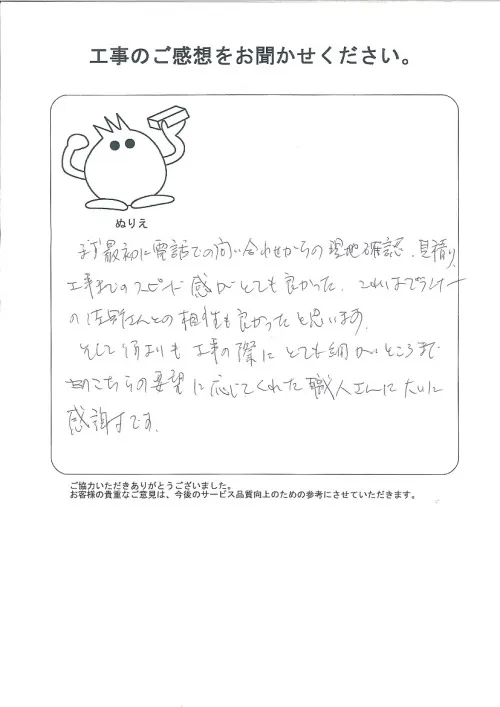 工事のご感想をお聞かせください。
ぬりえ
まず最初に電話での問い合わせからの現地確認、見積り、
工事までのスピード感がとても良かった。これはプランナー
の佐野さんとの相性も良かったと思います。
そして何よりも工事の際にとても細かいところまで
こちらの要望に応じてくれた職人さんに大いに
感謝です。
ご協力いただきありがとうございました。
お客様の貴重なご意見は、今後のサービス品質向上のための参考にさせていただきます。